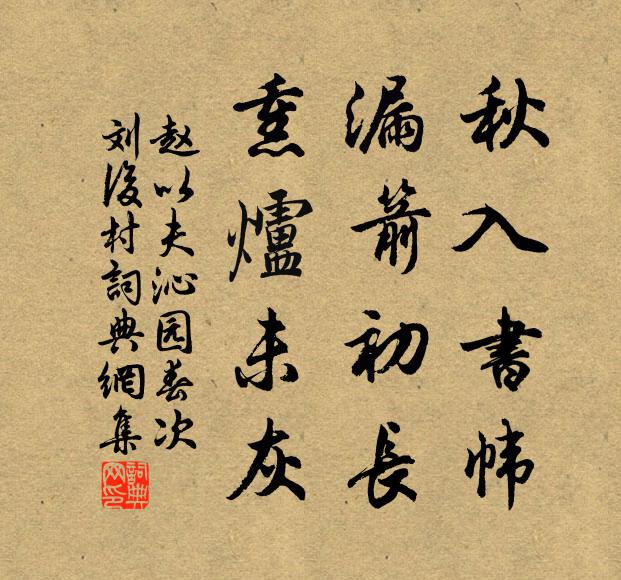 秋入書帏
漏箭初長
熏爐未灰
赵以夫沁园春次
刘後村詞典網集
詞典网印